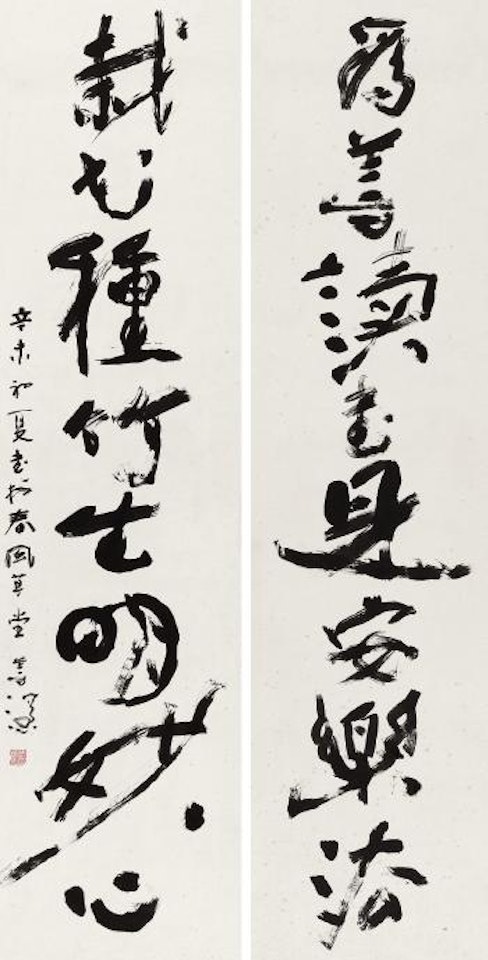 爲善讀書見安樂法
栽花種竹生明妙心
辛未初夏書於春風草堂